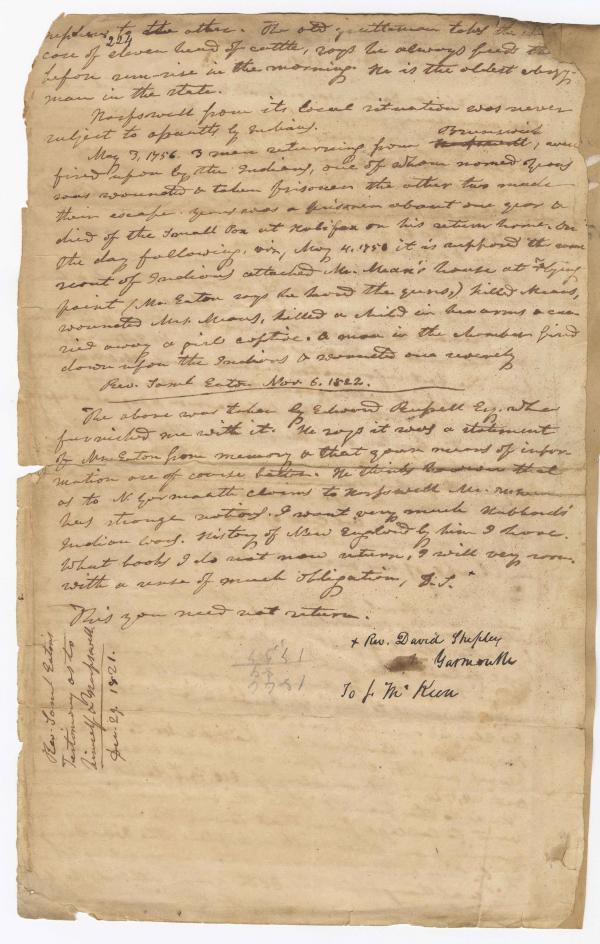 224
to the other. The old gentleman takes the
care of eleven head of cattle, says he always feeds the
before sun-rise in the morning. He is the oldest clergy-
man in the state.
Harpswell from its local situation was never
subject to assaults by Indians.
May 3, 1756. 3 men returning from Brunswick, were
fired upon by the Indians, one of whom named Yeas
was wounded & taken prisoner the other two made
their escape. Yeas was a prisoner about one year &
died of the Small Pox at Halifax on his return home. On
the day following, viz, May 4, 1756 it is supposed the same
scout of Indians attacked Mr. Mean's house at Flying
point (Mr. Eaton says he heard the guns,) killed Means,
wounded Mrs. Means, killed a child in her arms & car
ried away a girl captive. A man in the chamber fired
down upon the Indians & wounded one severely
Rev. Saml Eaton Nov. 6. 1822.
The above was taken by Edward Russell Esq. who
furnished me with it. He says it was a statement
of Mr. Eaton from memory & that your means of infor
mation are of course better. He thinks however that
as to N Yarmouth claims to Harpswell Mr.
has strange notions. I want very much Hubbard's
Indian Wars. History of New England by him I have.
What books I do not now return, I will very soon.
with a sense of much obligation, D. S.+
This you need not return.
+ Rev. David Shepley
Yarmouth
To J. McKeen
Rev. Saml Eaton's
Testimony as to
himself & Harpswell
Dec. 29. 1821.